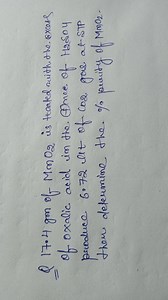 Q 17.4 gm of MnO2 is treated with the excess
of oxalic acid in the. Once of H2SO4
produce 6.72 lit of CO2 gas at STP
then determine the % purity of MnO2.